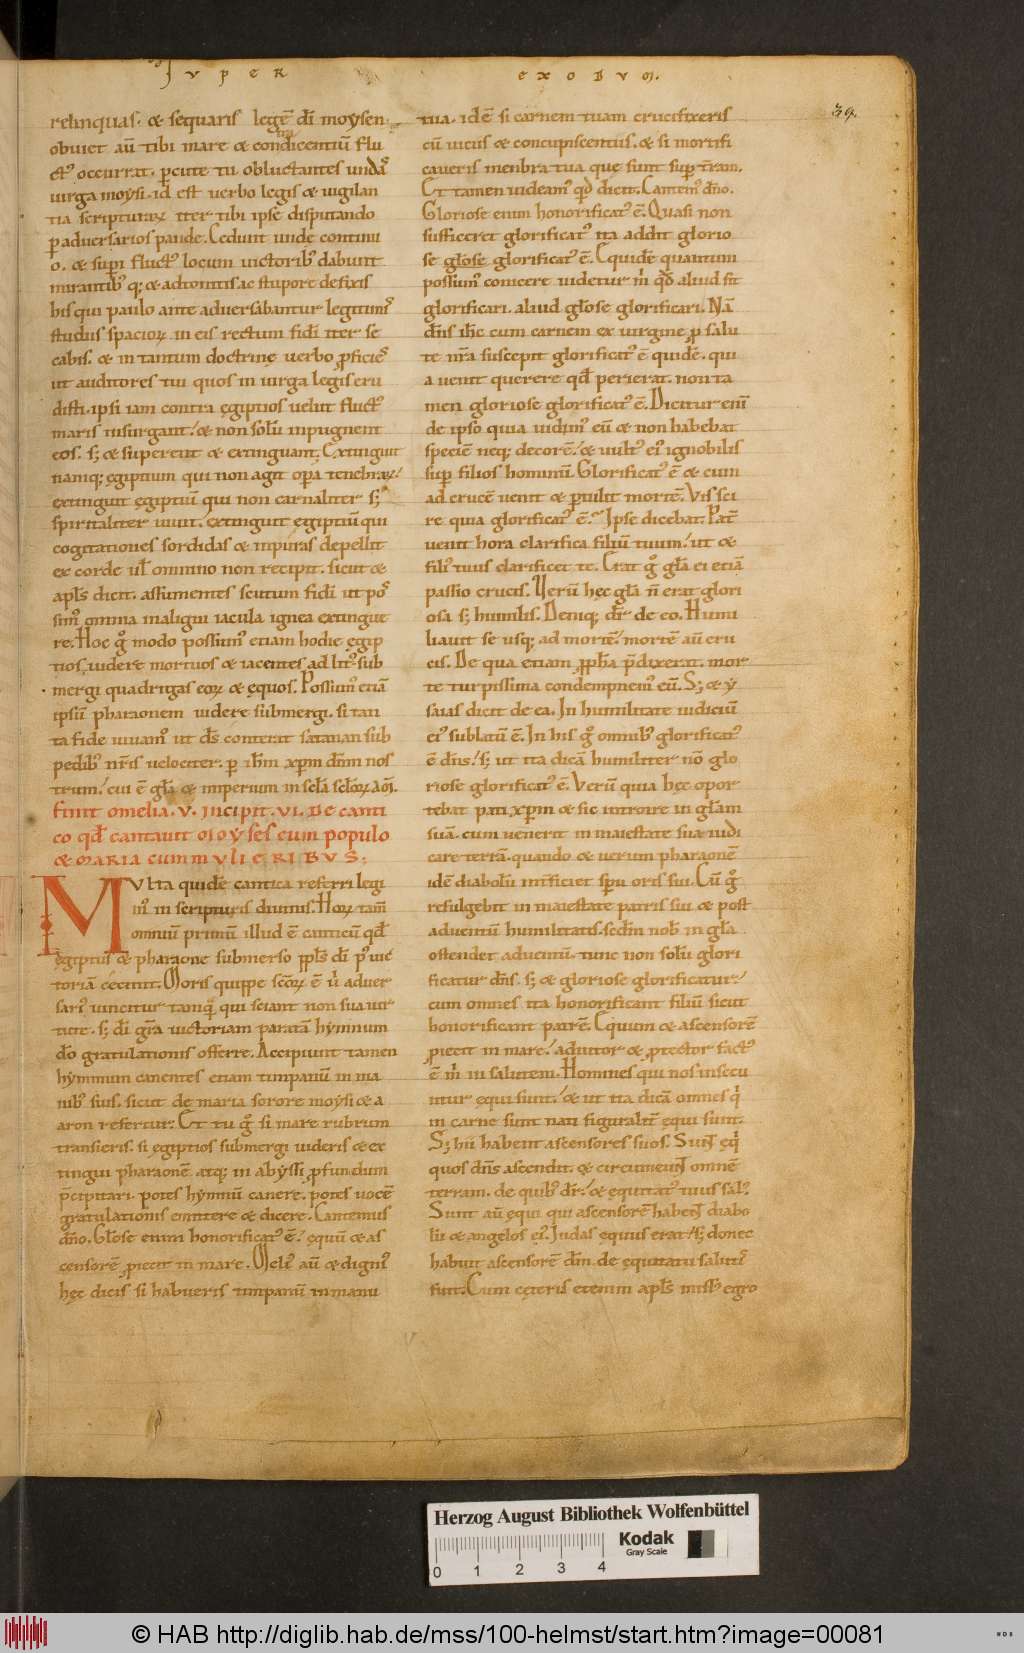 SVPER EXODVM.
39.
relinquas. & sequaris legē dī moysen.
obuiet aū tibi mare & contradicentiū flu
ctꝰ occurrat. ꝑcute tu obluctantes undaſ
uirga moysi. id est uerbo legis & uigilan
tia scripturaꝝ iter tibi ipse disputando
ꝑ aduersarios pande. Cedunt unde continu
o. & suꝑi fluctꝰ locum uictoribꝰ dabunt
mirantibꝰ q; & adtonitis ac stupore defixis
his qui paulo ante aduersabantur legitimiſ
studiis spacioꝝ in eis rectum fidī iter se
cabis. & in tantum doctrinę uerbo ꝓficieſ
ut auditores tui quos in uirga legis eru
disti. ipsi iam contra ęgiptios uelut fluctꝰ
maris insurgant. & non solū inpugnent
eos. s; & superent & extinguant. Extinguit
namq; ęgiptium qui non agit oꝑa tenebraꝝ.
extinguit ęgiptiū qui non carnaliter s;
spiritaliter uiuit. extinguit ęgiptiū qui
cogitationes sordidas & inpuras depellit
ex corde ul omnino non recipit. sicut &
apls dicit. assumentes scutum fidī ut poſ
simꝰ omnia maligni iacula ignea extingue
re. Hoc g modo possumꝰ etiam hodie ęgip
tios uidere mortuos & iacentes ad litꝰ sub
mergi quadrigas eoꝝ & ęquos. Possumꝰ etiā
ipsū pharaonem uidere submergi. si tan
ta fide uiuamꝰ ut ds conterat satanan sub
pedibꝰ nris uelociter. ꝑ ihm xpm dnm nos
trum. cui ē gla & imperium in scla scloꝝ. am.
finit omelia. v. incipit. vi. de canti
co qd cantauit moyses cum populo
& maria cum mvlieribvs;
Mvlta quidē cantica referri legi
mꝰ in scripturis diuinis. Hoꝝ tam
omniū primū illud ē canticū qd
ęgiptiis & pharaone submerso ppls dī pꝰ uic
toriā cecinit. Moris quippe scoꝝ ē u aduer
sariꝰ uincitur tamq qui sciant non sua uir
tute. s; dī gra uictoriam paratā hymnum
do gratulationis offerre. Accipiunt tamen
hymnum canentes etiam timpanū in ma
nibꝰ suis. sicut de maria sorore moysi & a
aron refertur. Et tu g si mare rubrum
transieris. si ęgiptios submergi uideris & ex
tingui pharaonē. atq; in abyssi ꝓfundum
pcipitari. potes hymnū canere. potes uocē
gratulationis emittere & dicere. Cantemus
dno. Glose enim honorificatꝰ ē. equū & as
censorē ꝓiecit in mare. Meliꝰ aū & digniꝰ
hęc dicis si habueris timpanū in manu
tua. idē si carnem tuam crucifixeris
cū uiciis & concupiscentiis. & si mortifi
caueris menbra tua quę sunt suꝑ tram.
Et tamen uideamꝰ qd dicit. Cantemꝰ dno.
Gloriose enim honorificatꝰ ē. Quasi non
sufficeret glorificatꝰ ita addit glorio
se glose glorificatꝰ ē. Equidē quantum
possum conicere uidetur m qd aliud sit
glorificari. aliud glose glorificari. Nā
dns ihc cum carnem ex uirgine ꝓ salu
te nra suscepit glorificatꝰ ē quidē. qui
a uenit querere qd perierat. non ta
men gloriose glorificatꝰ ē. Dicitur enī
de ipso quia uidimꝰ eū & non habebat
speciē neq; decorē. & uultꝰ eiꝰ ignobilis
suꝑ filios hominū. Glorificatꝰ ē & cum
ad crucē uenit & ꝑtulit mortē. Vis sci
re quia glorificatꝰ ē. Ipse dicebat. Pat
uenit hora clarifica filiū tuum. ut &
filiꝰ tuus clarificet te. Erat g gla ei etiā
passio crucis. Verū hęc gla n erat glori
osa s; humilis. Deniq; dr de eo. Humi
liauit se usq; ad mortē. mortē aū cru
cis. De qua etiam ꝓpha pdixerat. mor
te turpissima condempnemꝰ eū. S; & y
saias dicit de ea. In humilitate iudiciū
eiꝰ sublatū ē. In his g omnibꝰ glorificatꝰ
ē dns. s; ut ita dicā humiliter nō glo
riose glorificatꝰ ē. Verū quia hęc opor
tebat pati xpm & sic introire in glam
suā. cum uenerit in maiestate sua iudi
care terrā. quando & uerum pharaonē
idē diabolū intficiet spu oris sui. Cū g
refulgebit in maiestate patris sui & post
aduentū humilitatis. scdm nob in gla
ostendet aduentū. tunc non solū glori
ficatur dns. s; & gloriose glorificatur.
cum omnes ita honorificant filiū sicut
honorificant patrē. Equum & ascensorē
ꝓiecit in mare. adiutor & ꝓtector factꝰ
ē m in salutem. Homines qui nos insecu
ntur ęqui sunt. & ut ita dicā omnes q
in carne sunt nati figuralit ęqui sunt.
S; hii habent ascensores suos. Sunt ęq
quos dns ascendit. & circumeunt omnē
terram. de quibꝰ dr. & equitatꝰ tuus salꝰ.
Sunt aū ęqui qui ascensorē habent diabo
lū & angelos eiꝰ. Iudas ęquus erat. s; donec
habuit ascensorē dnm de ęquitatu salutiſ
fuit. Cum cęteris etenim aplis missꝰ egro
Herzog August Bibliothek Wolfenbüttel
Kodak
Gray Scale
0 1 2 3 4
© HAB http://diglib.hab.de/mss/100-helmst/start.htm?image=00081